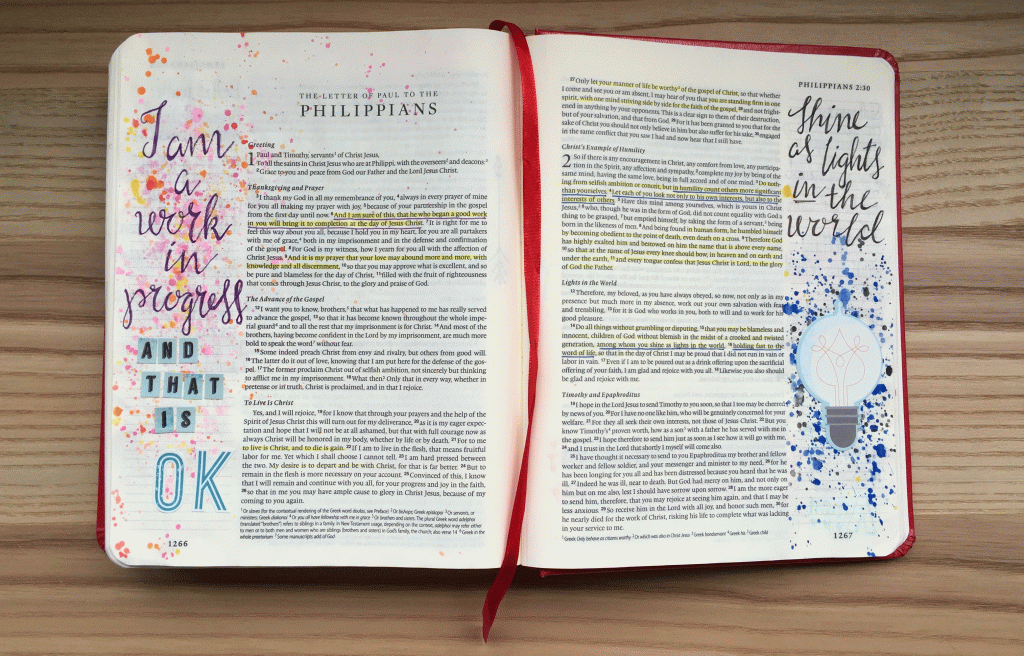 I am
a
work
in
progress
AND
THAT
IS
OK
THE LETTER OF PAUL TO THE
PHILIPPIANS
Greeting
1 Paul and Timothy, servants of Christ Jesus,
To all the saints in Christ Jesus who are at Philippi, with the overseers and deacons:
2 Grace to you and peace from God our Father and the Lord Jesus Christ.
Thanksgiving and Prayer
3 I thank my God in all my remembrance of you, 4 always in every prayer of mine
for you all making my prayer with joy, 5 because of your partnership in the gospel
from the first day until now. 6 And I am sure of this, that he who began a good work
in you will bring it to completion at the day of Jesus Christ. 7 It is right for me to
feel this way about you all, because I hold you in my heart, for you are all partakers
with me of grace, both in my imprisonment and in the defense and confirmation
of the gospel. 8 For God is my witness, how I yearn for you all with the affection of
Christ Jesus. 9 And it is my prayer that your love may abound more and more, with
knowledge and all discernment, 10 so that you may approve what is excellent, and so
be pure and blameless for the day of Christ, 11 filled with the fruit of righteousness
that comes through Jesus Christ, to the glory and praise of God.
The Advance of the Gospel
12 I want you to know, brothers, that what has happened to me has really served
to advance the gospel, 13 so that it has become known throughout the whole imperial
guard and to all the rest that my imprisonment is for Christ. 14 And most of the
brothers, having become confident in the Lord by my imprisonment, are much more
bold to speak the word without fear.
15 Some indeed preach Christ from envy and rivalry, but others from good will.
16 The latter do it out of love, knowing that I am put here for the defense of the gos-
pel. 17 The former proclaim Christ out of selfish ambition, not sincerely but thinking
to afflict me in my imprisonment. 18 What then? Only that in every way, whether in
pretense or in truth, Christ is proclaimed, and in that I rejoice.
To Live Is Christ
Yes, and I will rejoice, 19 for I know that through your prayers and the help of the
Spirit of Jesus Christ this will turn out for my deliverance, 20 as it is my eager expec-
tation and hope that I will not be at all ashamed, but that with full courage now as
always Christ will be honored in my body, whether by life or by death. 21 For to me
to live is Christ, and to die is gain. 22 If I am to live in the flesh, that means fruitful
labor for me. Yet which I shall choose I cannot tell. 23 I am hard pressed between
the two. My desire is to depart and be with Christ, for that is far better. 24 But to
remain in the flesh is more necessary on your account. 25 Convinced of this, I know
that I will remain and continue with you all, for your progress and joy in the faith,
26 so that in me you may have ample cause to glory in Christ Jesus, because of my
coming to you again.
1266
27 Only let your manner of life be worthy of the gospel of Christ, so that whether
I come and see you or am absent, I may hear of you that you are standing firm in one
spirit, with one mind striving side by side for the faith of the gospel, 28 and not fright-
ened in anything by your opponents. This is a clear sign to them of their destruction,
but of your salvation, and that from God. 29 For it has been granted to you that for the
sake of Christ you should not only believe in him but also suffer for his sake, 30 engaged
in the same conflict that you saw I had and now hear that I still have.
Christ's Example of Humility
2 So if there is any encouragement in Christ, any comfort from love, any participa-
tion in the Spirit, any affection and sympathy, 2 complete my joy by being of the
same mind, having the same love, being in full accord and of one mind. 3 Do noth-
ing from selfish ambition or conceit, but in humility count others more significant
than yourselves. 4 Let each of you look not only to his own interests, but also to the
interests of others. 5 Have this mind among yourselves, which is yours in Christ
Jesus, 6 who, though he was in the form of God, did not count equality with God a
thing to be grasped, 7 but emptied himself, by taking the form of a servant, being
born in the likeness of men. 8 And being found in human form, he humbled himself
by becoming obedient to the point of death, even death on a cross. 9 Therefore God
has highly exalted him and bestowed on him the name that is above every name,
10 so that at the name of Jesus every knee should bow, in heaven and on earth and
under the earth, 11 and every tongue confess that Jesus Christ is Lord, to the glory
of God the Father.
Lights in the World
12 Therefore, my beloved, as you have always obeyed, so now, not only as in my
presence but much more in my absence, work out your own salvation with fear
and trembling, 13 for it is God who works in you, both to will and to work for his
good pleasure.
14 Do all things without grumbling or disputing, 15 that you may be blameless and
innocent, children of God without blemish in the midst of a crooked and twisted
generation, among whom you shine as lights in the world, 16 holding fast to the
word of life, so that in the day of Christ I may be proud that I did not run in vain or
labor in vain. 17 Even if I am to be poured out as a drink offering upon the sacrificial
offering of your faith, I am glad and rejoice with you all. 18 Likewise you also should
be glad and rejoice with me.
Timothy and Epaphroditus
19 I hope in the Lord Jesus to send Timothy to you soon, so that I too may be cheered
by news of you. 20 For I have no one like him, who will be genuinely concerned for your
welfare. 21 For they all seek their own interests, not those of Jesus Christ. 22 But you
know Timothy's proven worth, how as a son with a father he has served with me in
the gospel. 23 I hope therefore to send him just as soon as I see how it will go with me,
24 and I trust in the Lord that shortly I myself will come also.
25 I have thought it necessary to send to you Epaphroditus my brother and fellow
worker and fellow soldier, and your messenger and minister to my need, 26 for he
has been longing for you all and has been distressed because you heard that he was
ill. 27 Indeed he was ill, near to death. But God had mercy on him, and not only on
him but on me also, lest I should have sorrow upon sorrow. 28 I am the more eager
to send him, therefore, that you may rejoice at seeing him again, and that I may be
less anxious. 29 So receive him in the Lord with all joy, and honor such men, 30 for
he nearly died for the work of Christ, risking his life to complete what was lacking
in your service to me.
1267
PHILIPPIANS 2:30
Shine
as lights
in the
world